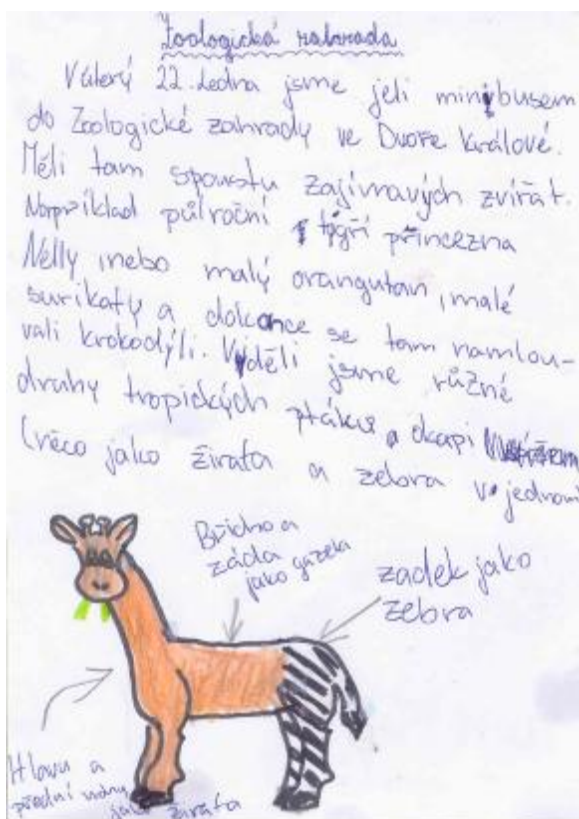 Zoologická zahrada
V úterý 22. ledna jsme jeli minibusem
do Zoologické zahrady ve Dvoře Králové.
Měli tam spoustu zajímavých zvířat.
Například půlroční tygří princezna
Nelly, nebo malý orangutan, malé
surikaty a dokonce se tam namlou-
vali krokodýli. Viděli jsme různé
druhy tropických ptáků, a okapi
(něco jako žirafa a zebra v jednom
Břicho a
záda
jako gazela
zadek jako
zebra
Hlavu a
přední nohy
jako žirafa